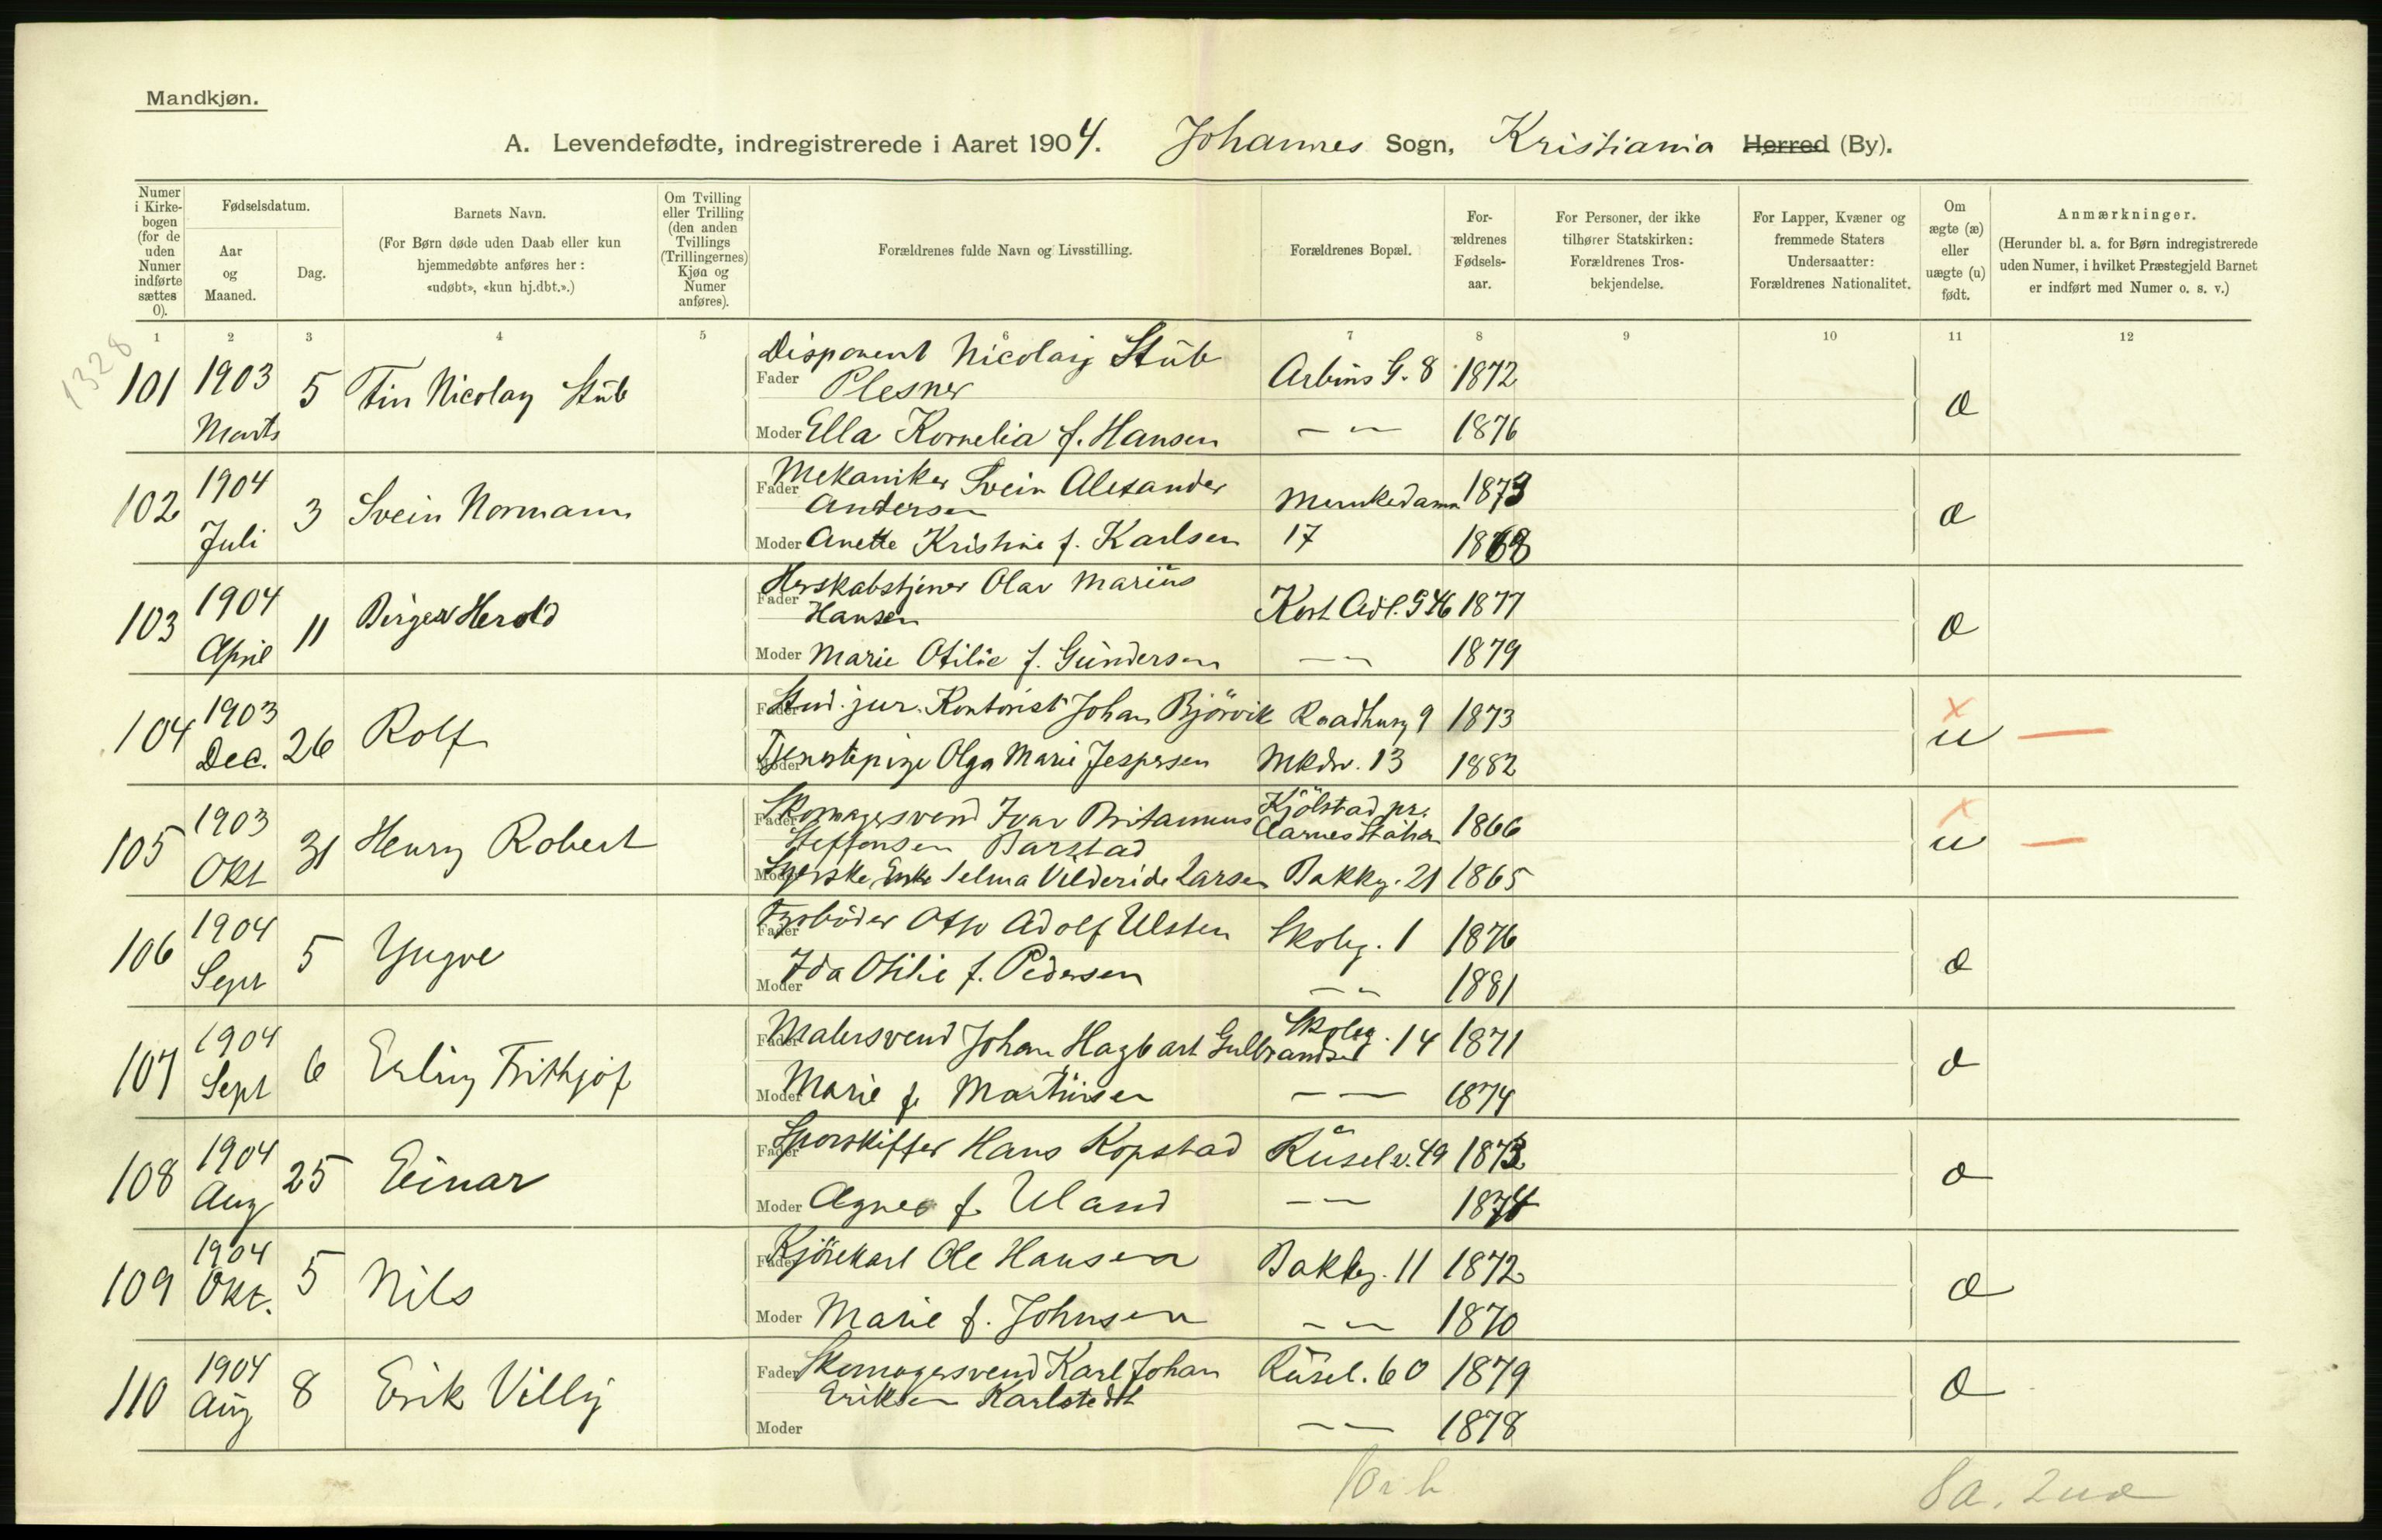 Mandkjøn.
A. Levendefødte, indregistrerede i Aaret 1904. Johannes Sogn, Kristiania Herred (By).
Numer i Kirkebogen (for de uden Numer indførte sættes 0).
Fødselsdatum.
Aar og Maaned.
Dag.
Barnets Navn.
(For Børn døde uden Daab eller kun hjemmedøbte anføres her: «udøbt», «kun hj.dbt.».)
Om Tvilling eller Trilling (den anden Tvillings (Trillingernes) Kjøn og Numer anføres).
Forældrenes fulde Navn og Livsstilling.
Forældrenes Bopæl.
Forældrenes Fødselsaar.
For Personer, der ikke tilhører Statskirken: Forældrenes Trosbekjendelse.
For Lapper, Kvæner og fremmede Staters Undersaatter: Forældrenes Nationalitet.
Om ægte (æ) eller uægte (u) født.
Anmærkninger.
(Herunder bl. a. for Børn indregistrerede uden Numer, i hvilket Præstegjeld Barnet er indført med Numer o. s. v.)
1 2 3 4 5 6 7 8 9 10 11 12
1328
101 1903 Marts 5 Fin Nicolay Stub
Fader Disponent Nicolay Stub Plesner Arbins G. 8 1872
Moder Ella Kornelia f. Hansen - " - 1876
102 1904 Juli 3 Svein Normann
Fader Mekaniker Svein Alexander Andersen Munkedamv 1873
Moder Anette Kristine f. Karlsen 17 1868
103 1904 April 11 Birger Herold
Fader Herskabstjener Olav Marius Hansen Kort Adl. G 46 1877
Moder Marie Otilie f. Gundersen - " - 1879
104 1903 Dec. 26 Rolf
Fader Stud. jur. Kontorist Johan Björvik Raadhusg 9 1873 u
Moder Tjenestepige Olga Marie Jespersen Mkdv. 13 1882
105 1903 Okt 31 Henry Robert
Fader Skomagersvend Ivar Steffensen Barstad Kjölstad pr. Aarnes 1866 u
Moder Syerske Enke Selma Larsen Bakkg. 21 1865
106 1904 Sept 5 Yngve
Fader Fyrböder Otto Adolf Ulsten Skoleg. 1 1876
Moder Ida Otilie f. Pedersen - " - 1881
107 1904 Sept 6 Erling Frithjof
Fader Malersvend Johan Hagbart Gulbrandsen Skoleg. 14 1871
Moder Marie f. Martinsen - " - 1874
108 1904 Aug 25 Einar
Fader Sporskifter Hans Kopstad Rusel v. 49 1873
Moder Agnes f. Uland - " - 1874
109 1904 Okt. 5 Nils
Fader Kjörekarl Ole Hansen Bakkeg. 11 1872
Moder Marie f. Johnsen - " - 1870
110 1904 Aug 8 Erik Villy
Fader Skomagersvend Karl Johan Eriksen Karlstedt Rusel. 60 1879
Moder - " - 1878